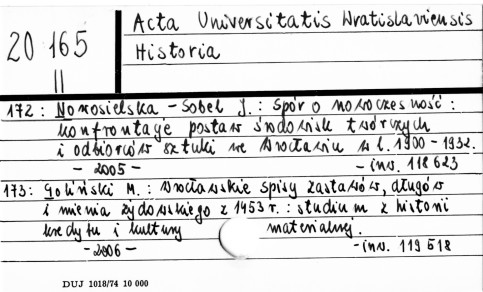 20 165
II
Acta Universitatis Wratislaviensis
Historia
172: Nowosielska-Sobel J.: Spór o nowoczesność:
konfrontacje postaw środowisk twórczych
i odbiorców sztuki we Wrocławiu w l. 1900-1932.
- 2005 - - inw. 118 623
173: Goliński M.: Wrocławskie spisy zastawów, długów
i mienia żydowskiego z 1453 r.: studium z historii
kredytu i kultury materialnej.
- 2006 - - inw. 119 518
DUJ 1018/74 10 000